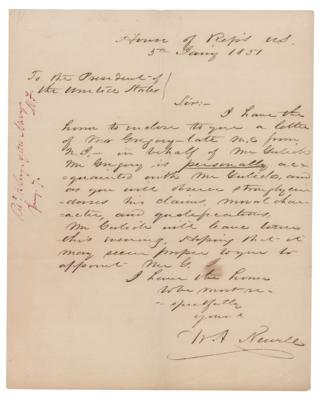 House of Reps U.S.
5th Jany 1851
To the President of
the United States
Sir:-
I have the
honor to enclose to you a letter
of Mr Gregory - late M.C. from
N.J. - in behalf of Mr Gulick
Mr Gregory is personally ac-
quainted with Mr Gulick, and
as you will observe strongly en-
dorses his claims, moral char-
acter, and qualifications.
Mr Gulick will leave here
this evening. Hoping that it
may seem proper to you to
appoint Mr G.
I have the honor
to be most re-
spectfully
yours
W A Newell
Navy